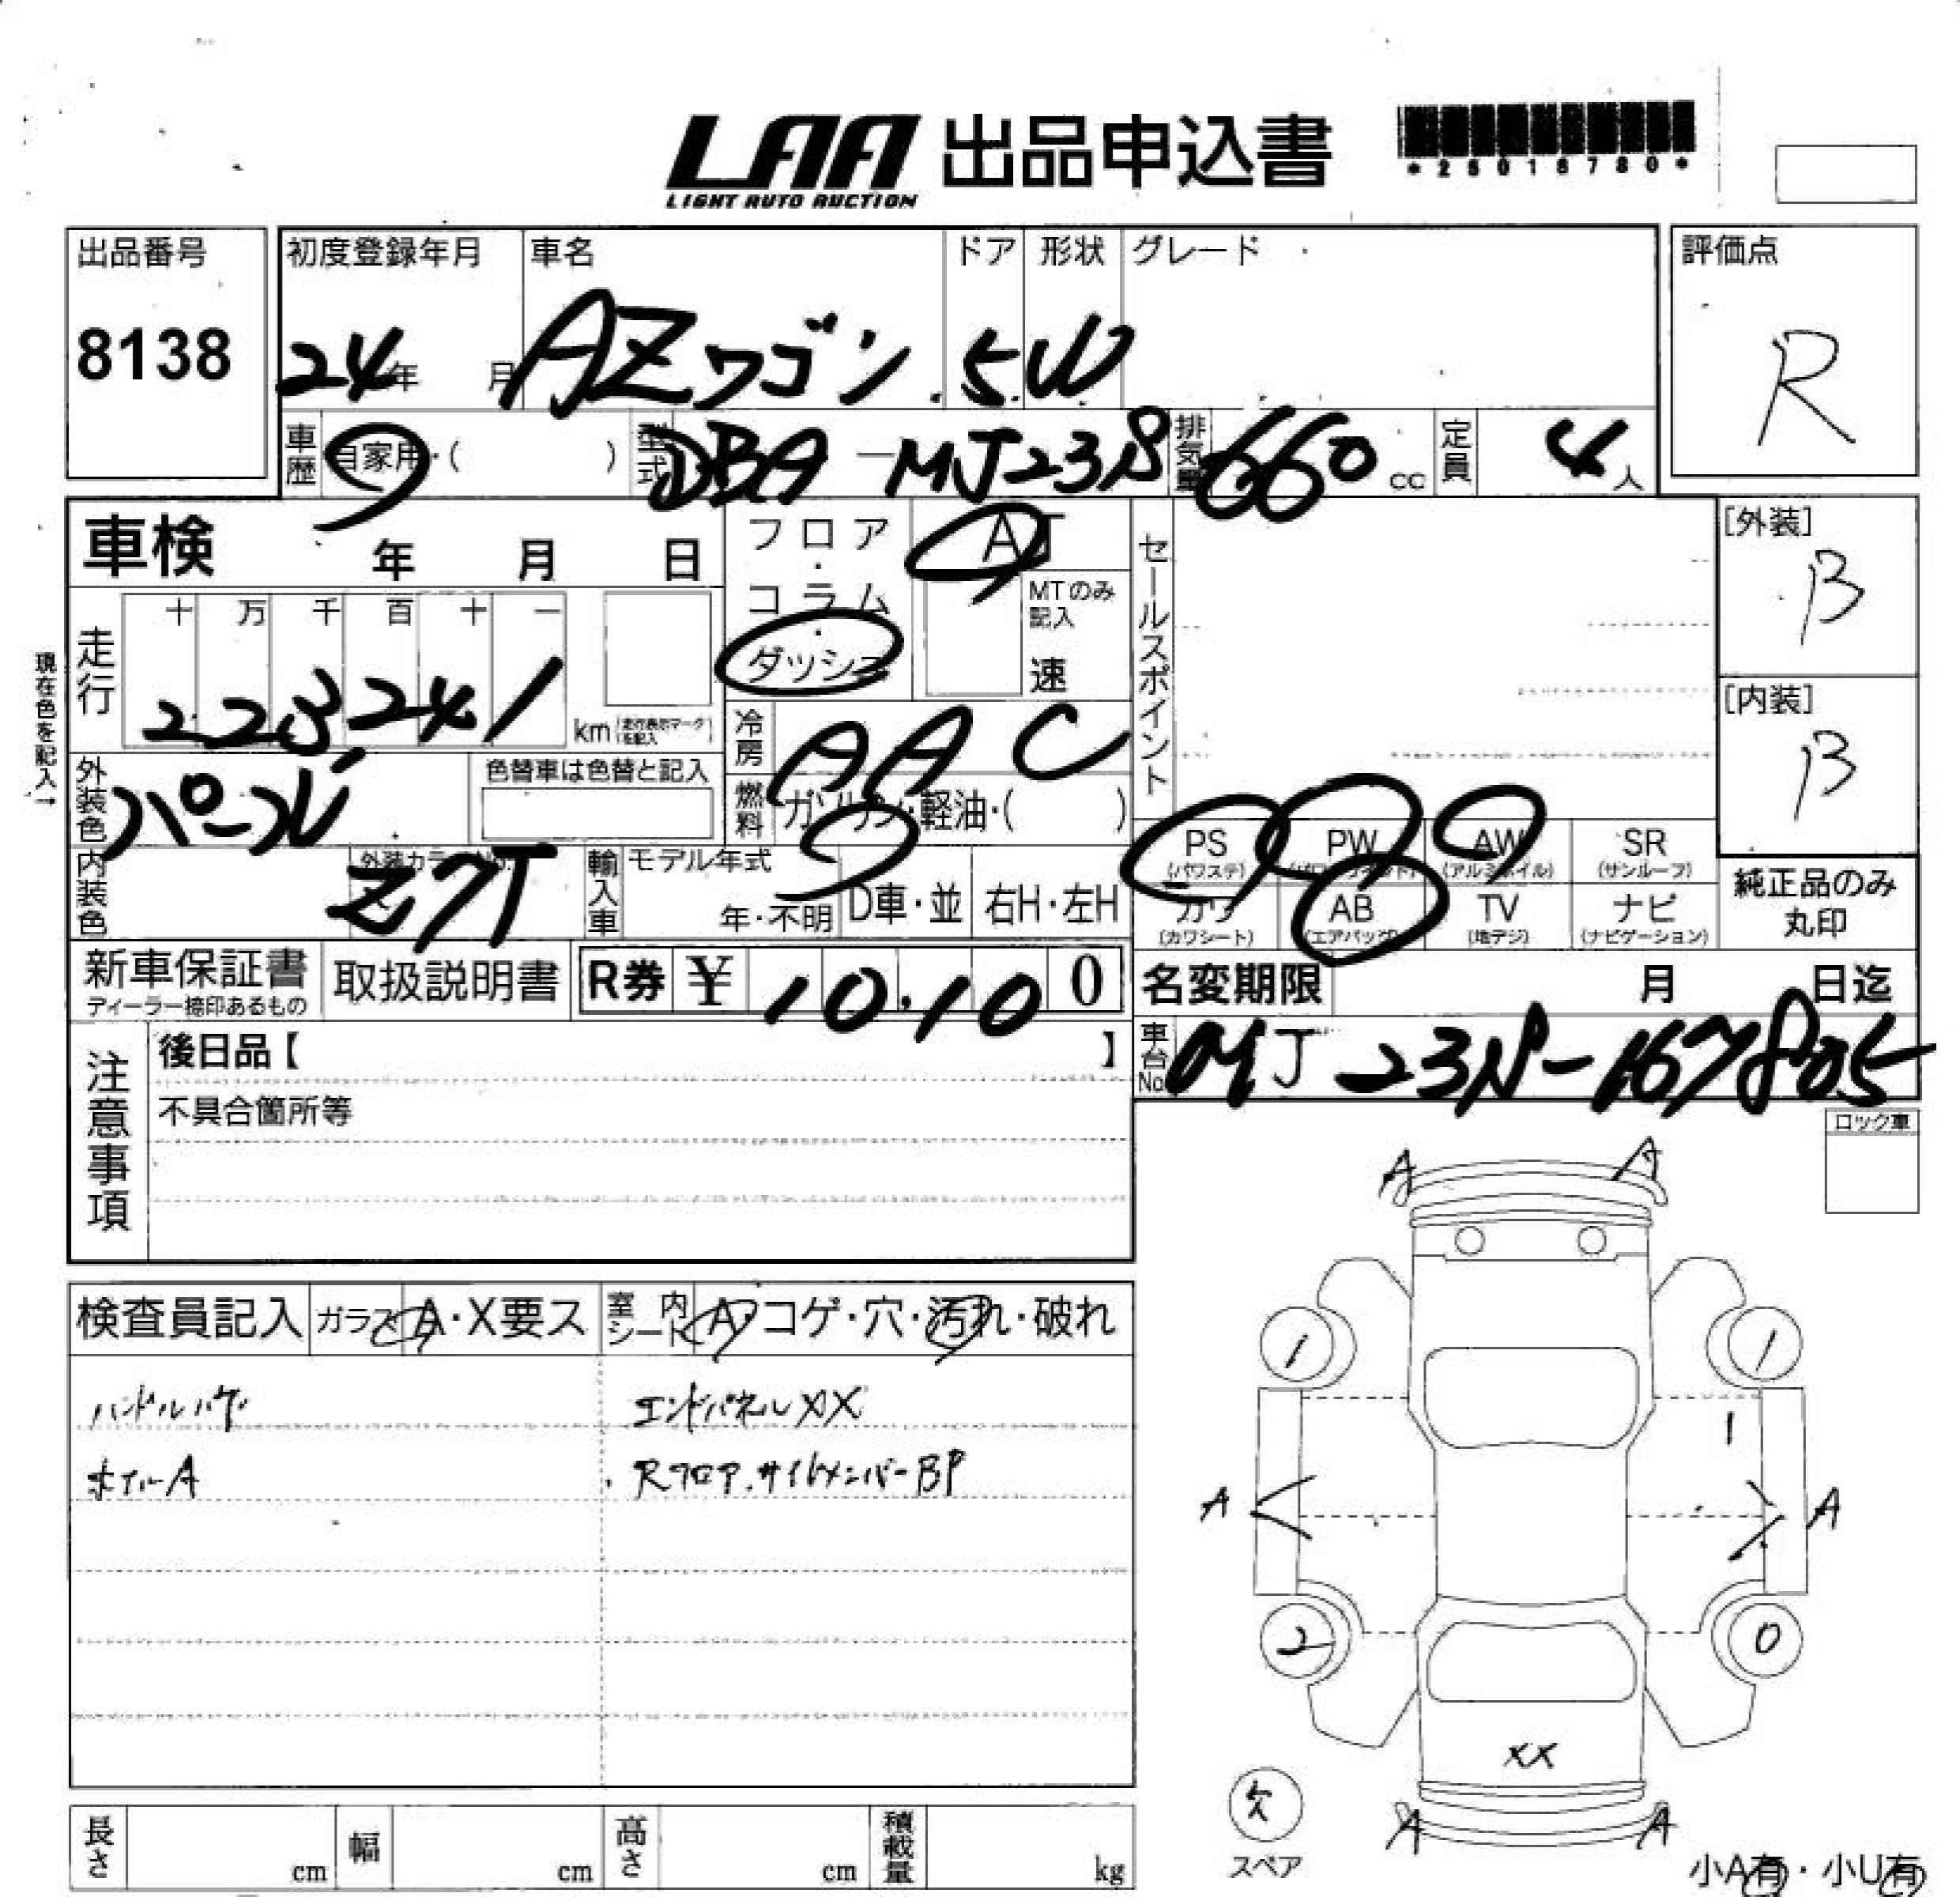 LAA 出品申込書
LIGHT AUTO AUCTION
*25016780*
出品番号 初度登録年月 車名 ドア 形状 グレード 評価点
8138 24年 月 AZワゴン 5 W R
車歴 自家用・( ) 型式 DBA-MJ23S 排気量 660 cc 定員 4人
車検 年 月 日
フロア・コラム・ダッシュ
AT
MTのみ記入
速
セールスポイント
[外装]
B
[内装]
B
現在色を記入→
走行 十 万 千 百 十 一
223,241 km (走行表示マークを記入)
冷房 AAC
外装色 パール 色替車は色替と記入
燃料 ガソリン・軽油・( )
内装色 外装カラーNo. Z7T
輸入車 モデル年式 年・不明 D車・並 右H・左H
PS (パワステ) PW (パワーウィンド) AW (アルミホイル) SR (サンルーフ)
カワ (カワシート) AB (エアバッグ) TV (地デジ) ナビ (ナビゲーション)
純正品のみ丸印
新車保証書 ディーラー捺印あるもの 取扱説明書 R券 ¥ 10,100
名変期限 月 日迄
車台No. MJ23S-167805
注意事項
後日品【 】
不具合箇所等
ロック車
検査員記入 ガラス A・X要ス 室内シート A・コゲ・穴・汚れ・破れ
ハンドルハゲ エンドパネルXX
ホイールA Rフロア.サイドメンバーBP
A A
1 1
1
A A
2 0
XX
A A
欠
スペア
小A有・小U有
長さ cm 幅 cm 高さ cm 積載量 kg